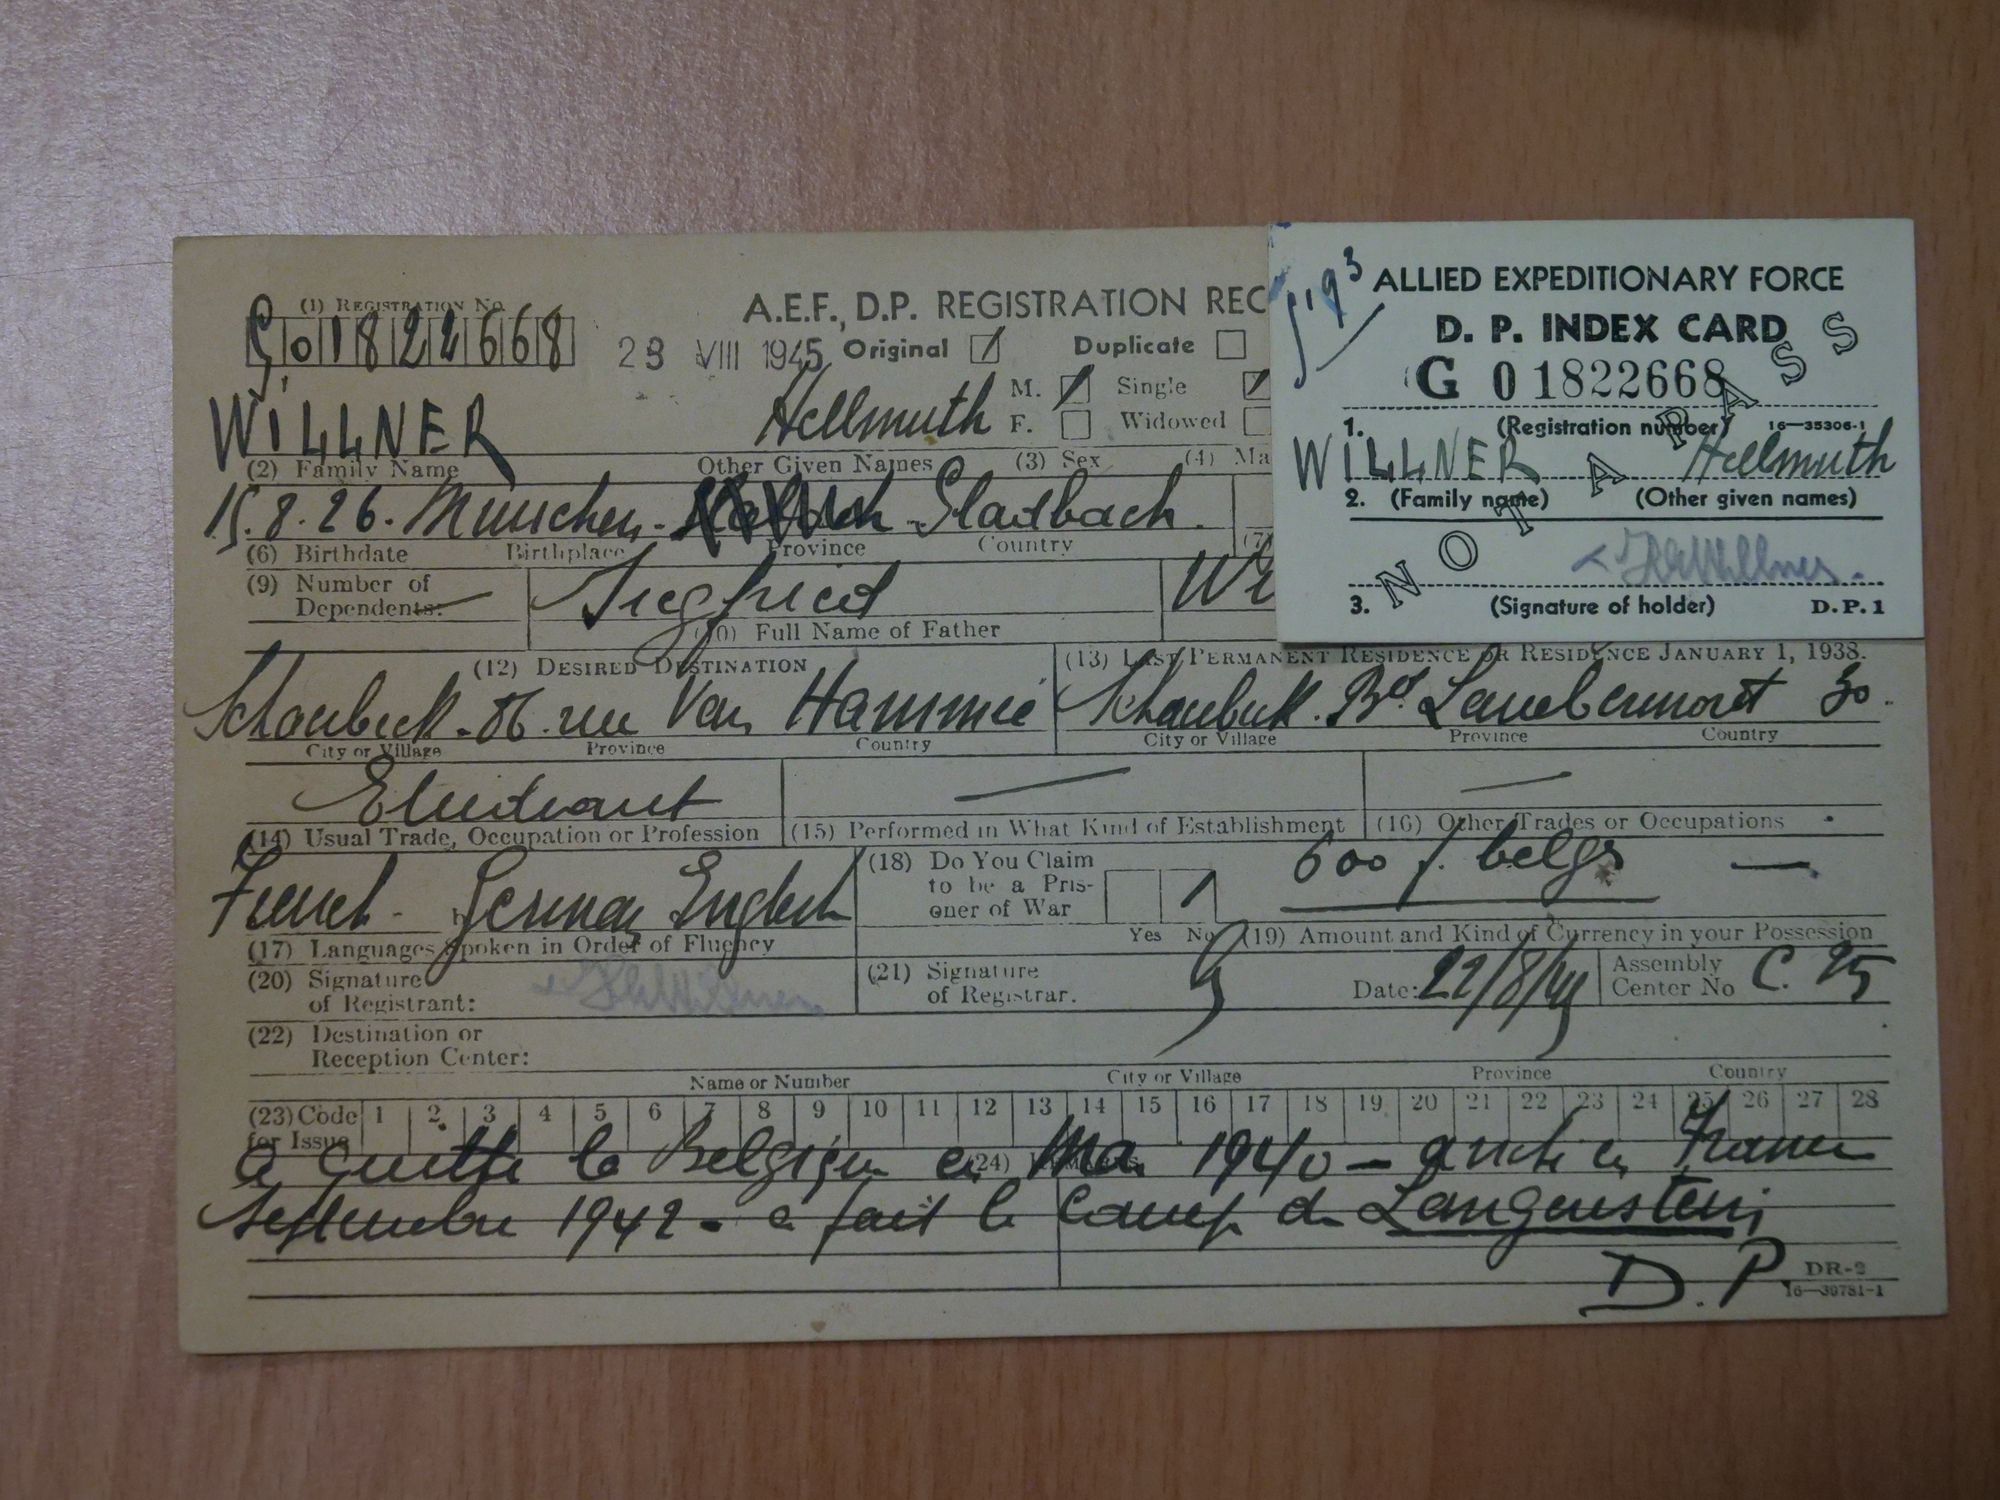 (1) REGISTRATION NO.
G01822668
23 VIII 1945
A.E.F., D.P. REGISTRATION REC
Original Duplicate
M. Single
F. Widowed
WILLNER Hellmuth
(2) Family Name Other Given Names (3) Sex (4) Ma
15.8.26. München - Gladbach.
(6) Birthdate Birthplace Province Country (7)
(9) Number of Dependents: — Siegfried
(10) Full Name of Father
(12) DESIRED DESTINATION
Schaerbeek - 86 rue Van Hammée
City or Village Province Country
(13) LAST PERMANENT RESIDENCE OR RESIDENCE JANUARY 1, 1938.
Schaerbeek. Bd. Lambermont 30.
City or Village Province Country
Etudiant — —
(14) Usual Trade, Occupation or Profession (15) Performed in What Kind of Establishment (16) Other Trades or Occupations
French - German English
(17) Languages Spoken in Order of Fluency
(18) Do You Claim
to be a Pris-
oner of War
Yes No
600 f. belges —
(19) Amount and Kind of Currency in your Possession
(20) Signature
of Registrant:
(21) Signature
of Registrar.
Date: 22/8/45
Assembly
Center No C. 95
(22) Destination or
Reception Center:
Name or Number City or Village Province Country
(23) Code
for Issue
1 2 3 4 5 6 7 8 9 10 11 12 13 14 15 16 17 18 19 20 21 22 23 24 25 26 27 28
a quitté la Belgique en Mai 1940 - arrêté en France
Septembre 1942 - a fait le Camp de Langenstein
D.P.
DR-2
16—39781-1
ALLIED EXPEDITIONARY FORCE
D. P. INDEX CARD
G 01822668
1. (Registration number) 16—35306-1
WILLNER Hellmuth
2. (Family name) (Other given names)
3. (Signature of holder) D.P.1
NOT A PASS